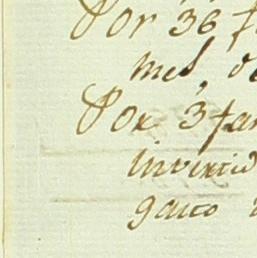 Por 36 f
mes, d
Por 3 fan
invertid
gasto